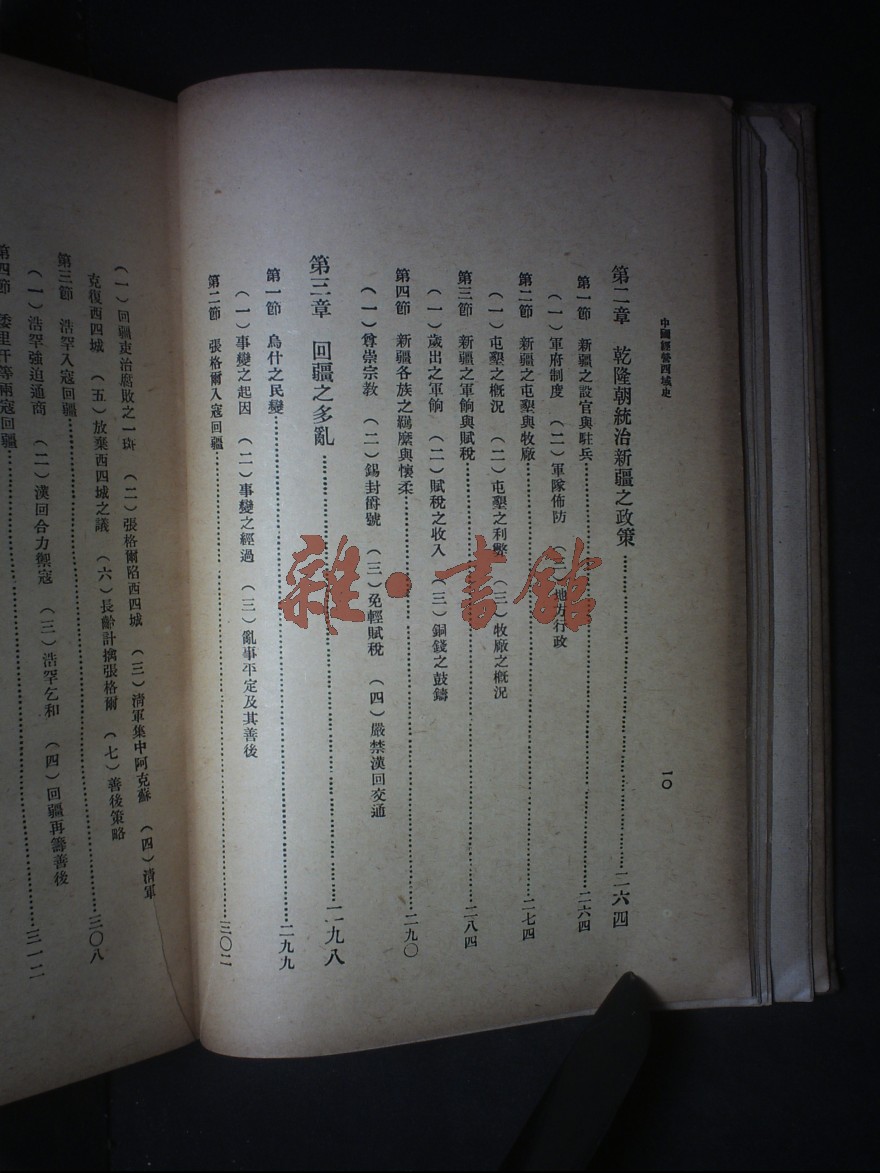 中國經營西域史
一〇
第二章　乾隆朝統治新疆之政策…………二六四
第一節　新疆之設官與駐兵…………二六四
（一）軍府制度　（二）軍隊佈防　（三）地方行政
第二節　新疆之屯墾與牧廠…………二七四
（一）屯墾之概況　（二）屯墾之利弊　（三）牧廠之概況
第三節　新疆之軍餉與賦稅…………二八四
（一）歲出之軍餉　（二）賦稅之收入　（三）銅錢之鼓鑄
第四節　新疆各族之羈縻與懷柔…………二九〇
（一）尊崇宗教　（二）錫封爵號　（三）免輕賦稅　（四）嚴禁漢回交通
第三章　回疆之多亂…………二九八
第一節　烏什之民變…………二九九
（一）事變之起因　（二）事變之經過　（三）亂事平定及其善後
第二節　張格爾入寇回疆…………三〇二
（一）回疆吏治腐敗之一斑　（二）張格爾陷西四城　（三）清軍集中阿克蘇　（四）清軍
克復西四城　（五）放棄西四城之議　（六）長齡計擒張格爾　（七）善後策略
第三節　浩罕入寇回疆…………三〇八
（一）浩罕強迫通商　（二）漢回合力禦寇　（三）浩罕乞和　（四）回疆再籌善後
第四節　倭里汗等兩寇回疆…………三一二
雜·書館